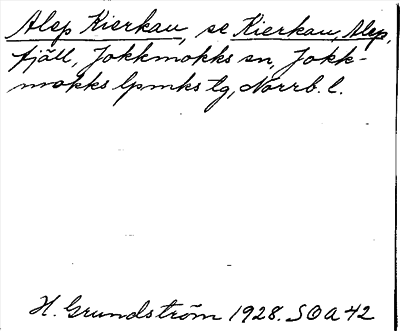 Alep Kierkau, se Kierkau, Alep,
fjäll, Jokkmokks sn, Jokk-
mokks lpmks tg, Norrb. l.
H. Grundström 1928. SOA 42